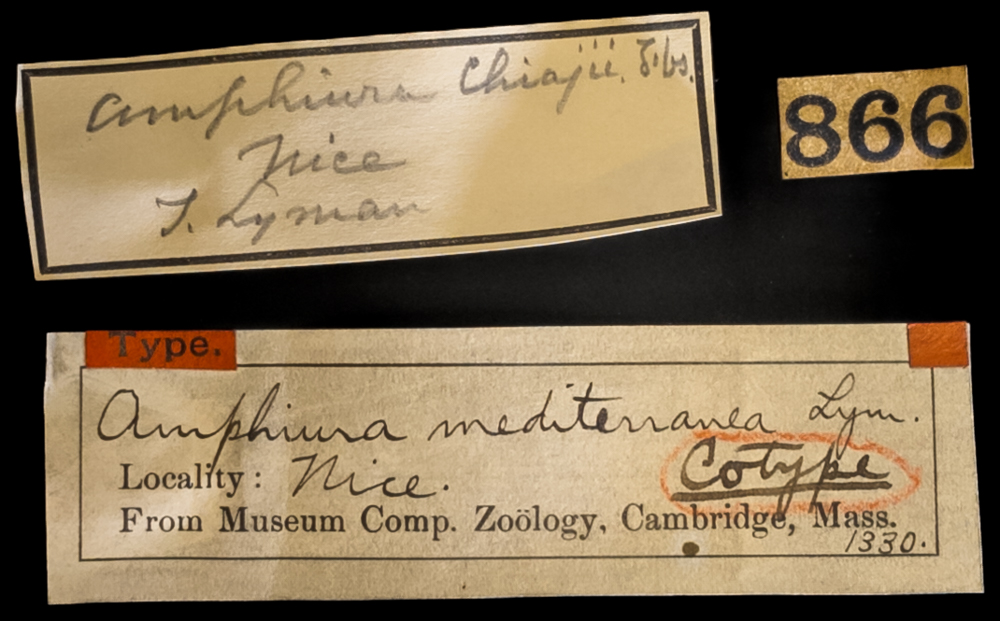 Amphiura Chiajii. Fbs.
Nice
T. Lyman
866
Type.
Amphiura mediterranea Lym.
Cotype
Locality: Nice.
From Museum Comp. Zoölogy, Cambridge, Mass.
1330.